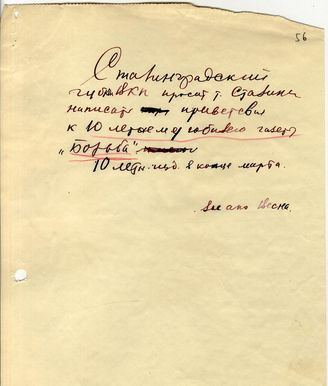 56
Сталинградский
губком ВКП просит т. Сталина
написать приветствие
к 10 летнему юбилею газеты
„Борьба“
10 летн. в конце марта.